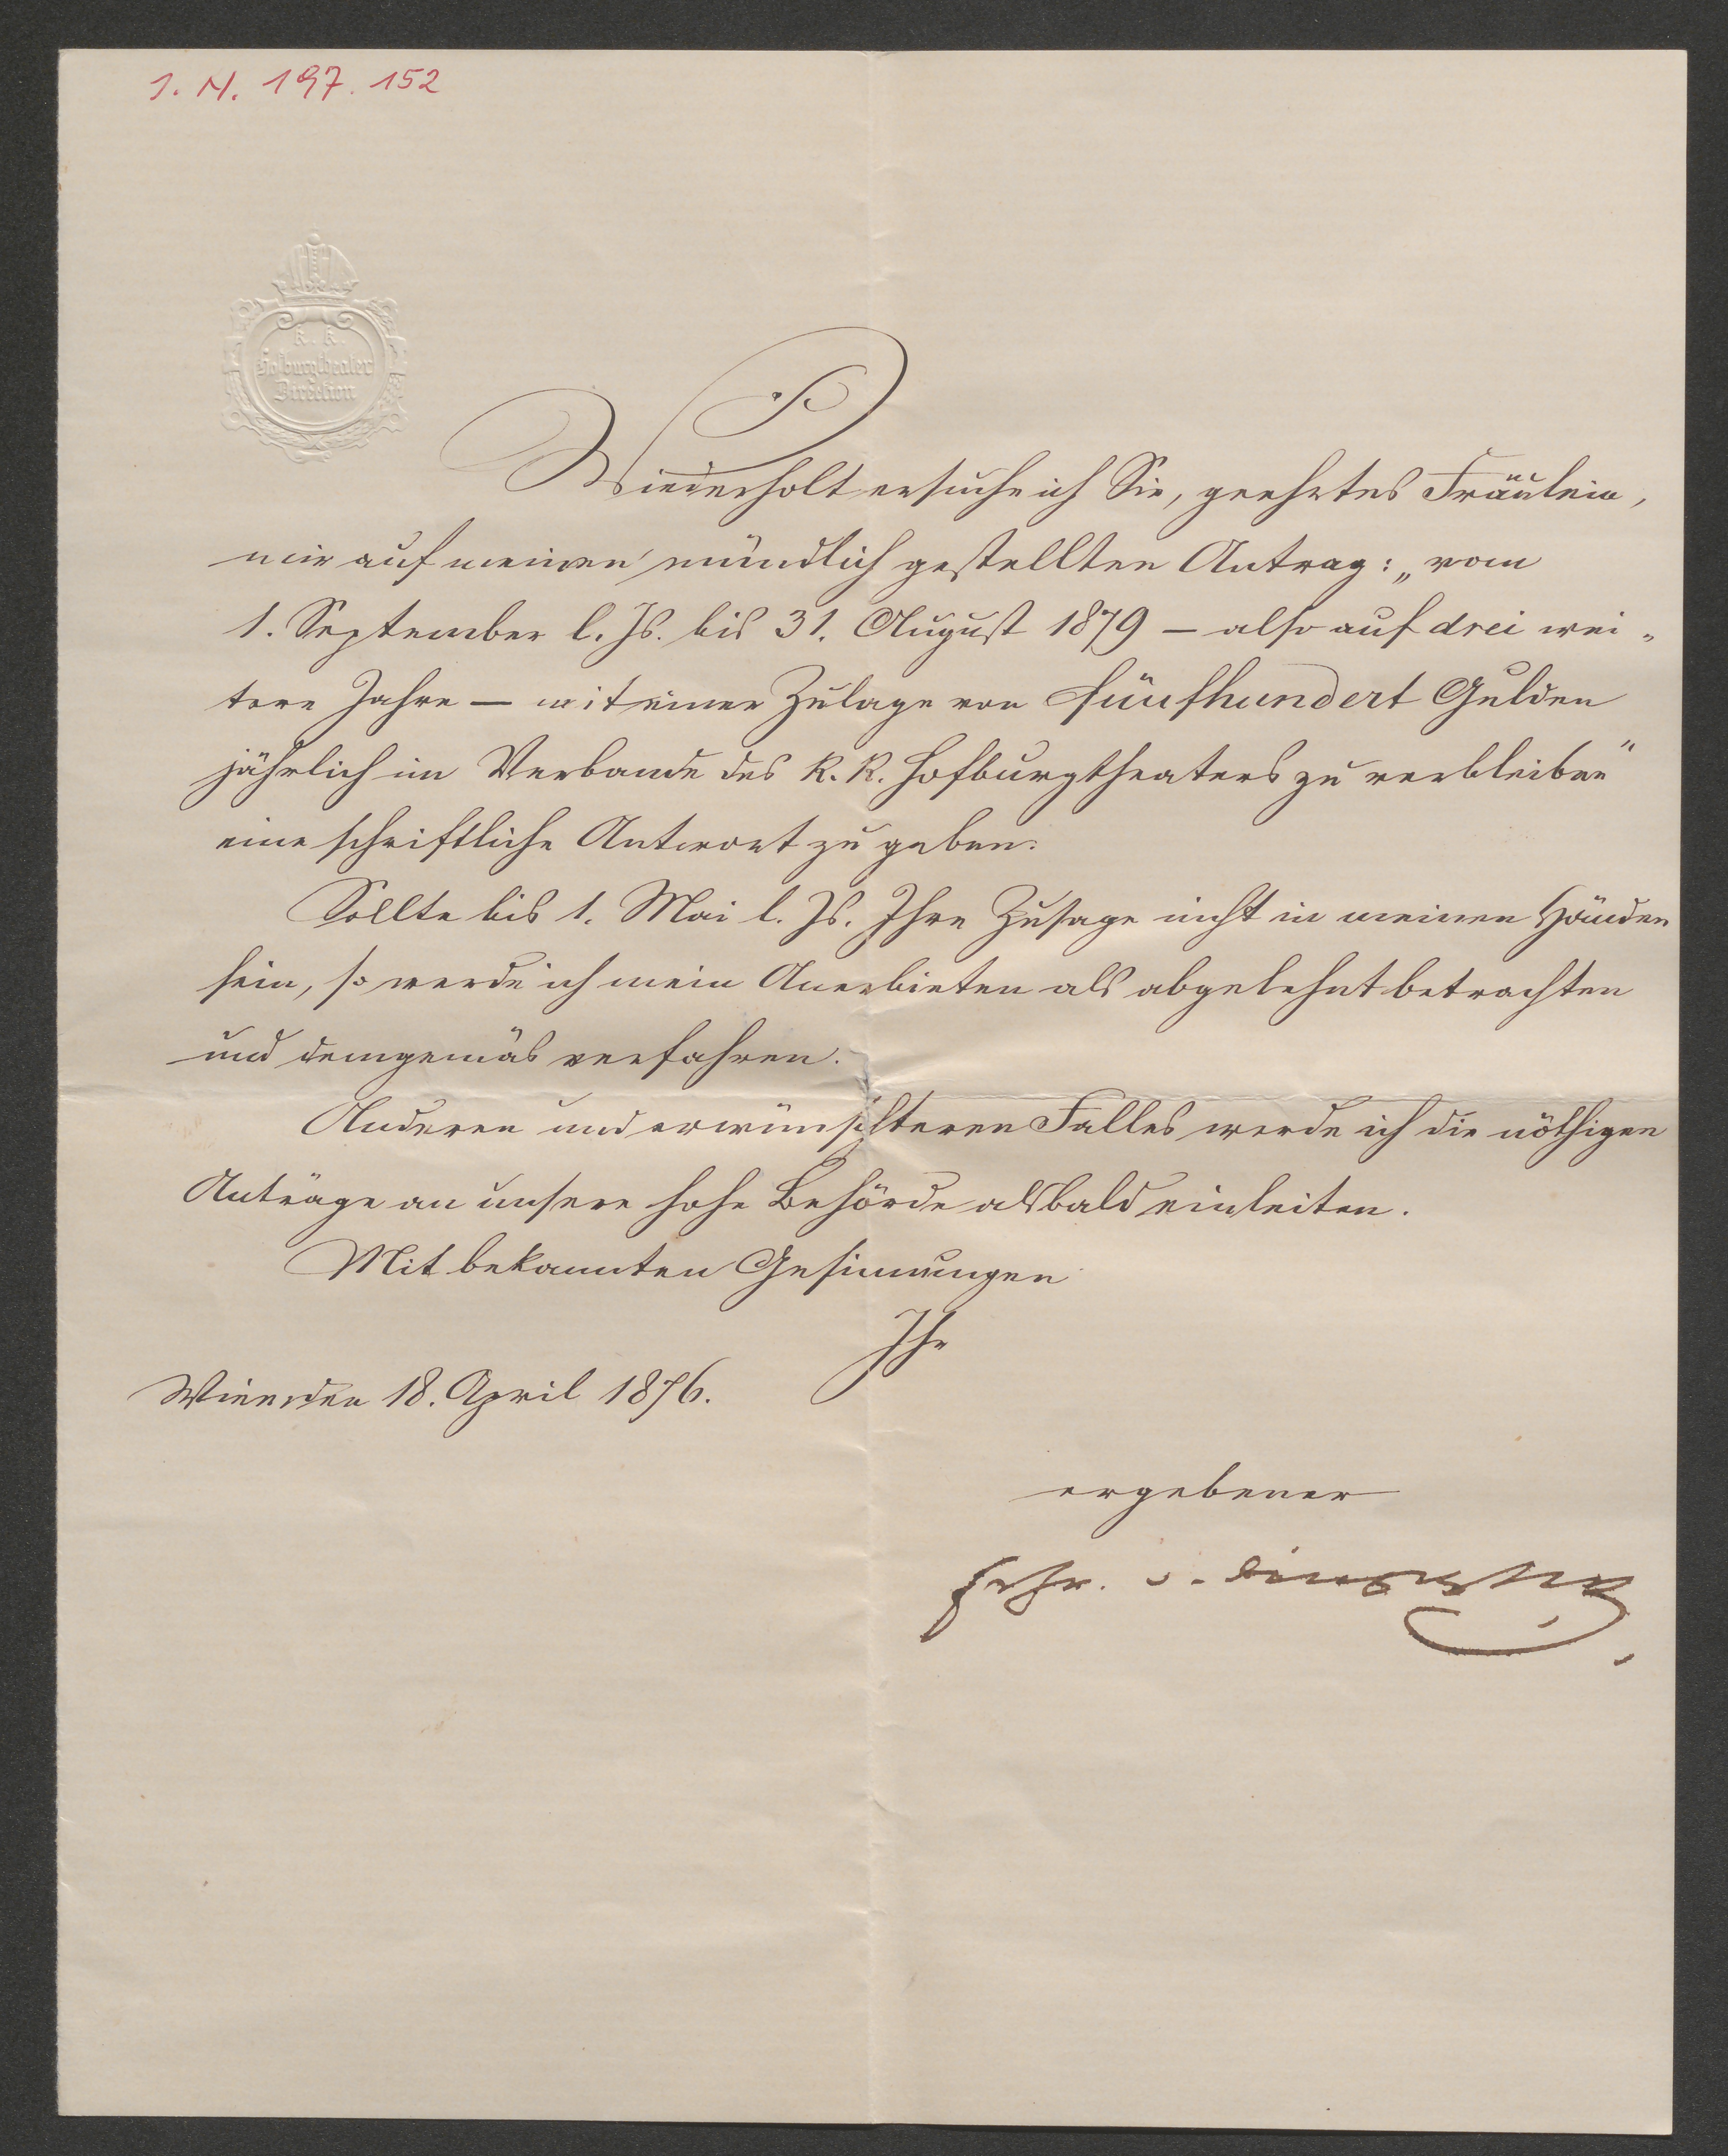 I. N. 197.152
K. K.
Hofburgtheater
Direction
Wiederholt ersuche ich Sie, geehrtes Fräulein,
mir auf meinen mündlich gestellten Antrag: „vom
1. September l. Js. bis 31. August 1879 – also auf drei wei-
tere Jahre – mit einer Zulage von fünfhundert Gulden
jährlich im Verbande des k. k. Hofburgtheaters zu verbleiben"
eine schriftliche Antwort zu geben.
Sollte bis 1. Mai l. Js. Ihre Zusage nicht in meinen Händen
sein, so werde ich mein Anerbieten als abgelehnt betrachten
und demgemäs verfahren.
Anderen und erwünschteren Falles werde ich die nöthigen
Anträge an unsere hohe Behörde alsbald einleiten.
Mit bekannten Gesinnungen
Ihr
Wien den 18. April 1876.
ergebener
Frhr. v. Dingelstedt